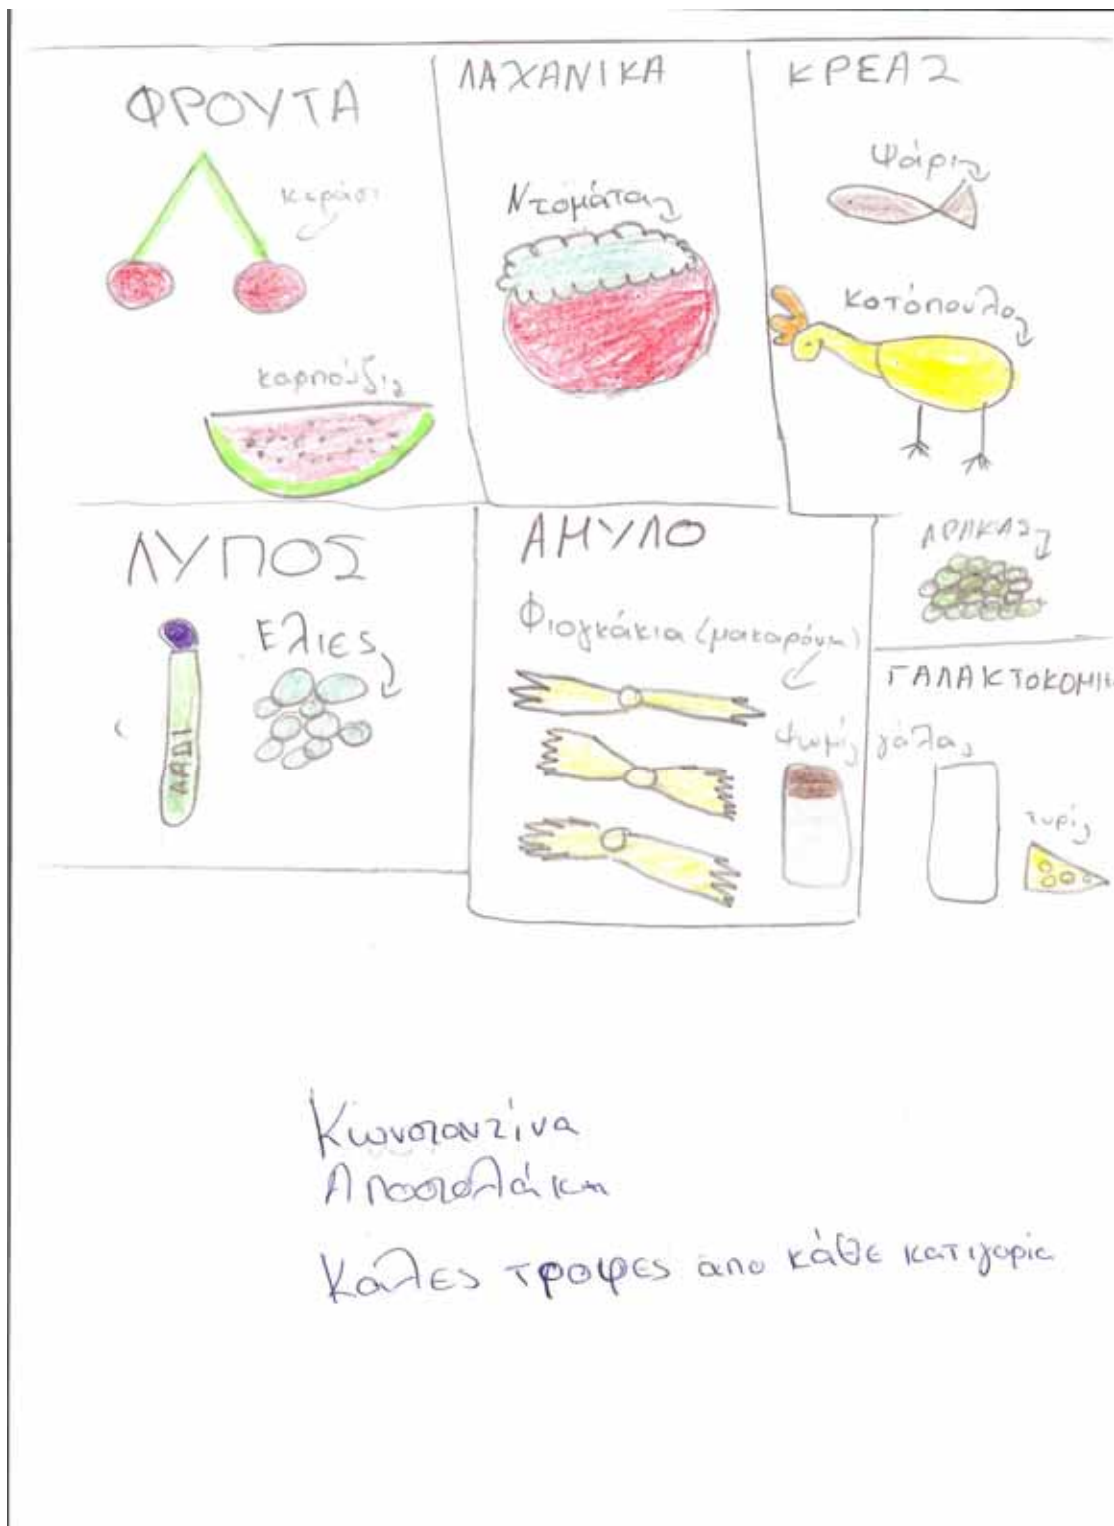 ΦΡΟΥΤΑ
κεράσι
καρπούζι
ΛΑΧΑΝΙΚΑ
Ντομάτα
ΚΡΕΑΣ
Ψάρι
κοτόπουλο
ΑΡΑΚΑΣ
ΛΥΠΟΣ
ΛΑΔΙ
Ελιες
ΑΜΥΛΟ
Φιογκάκια (μακαρόνια)
Ψωμί
ΓΑΛΑΚΤΟΚΟΜΙΚ
γάλα
τυρί
Κωνσταντίνα
Αποστολάκη
Κάλες τροφες απο κάθε κατιγορία